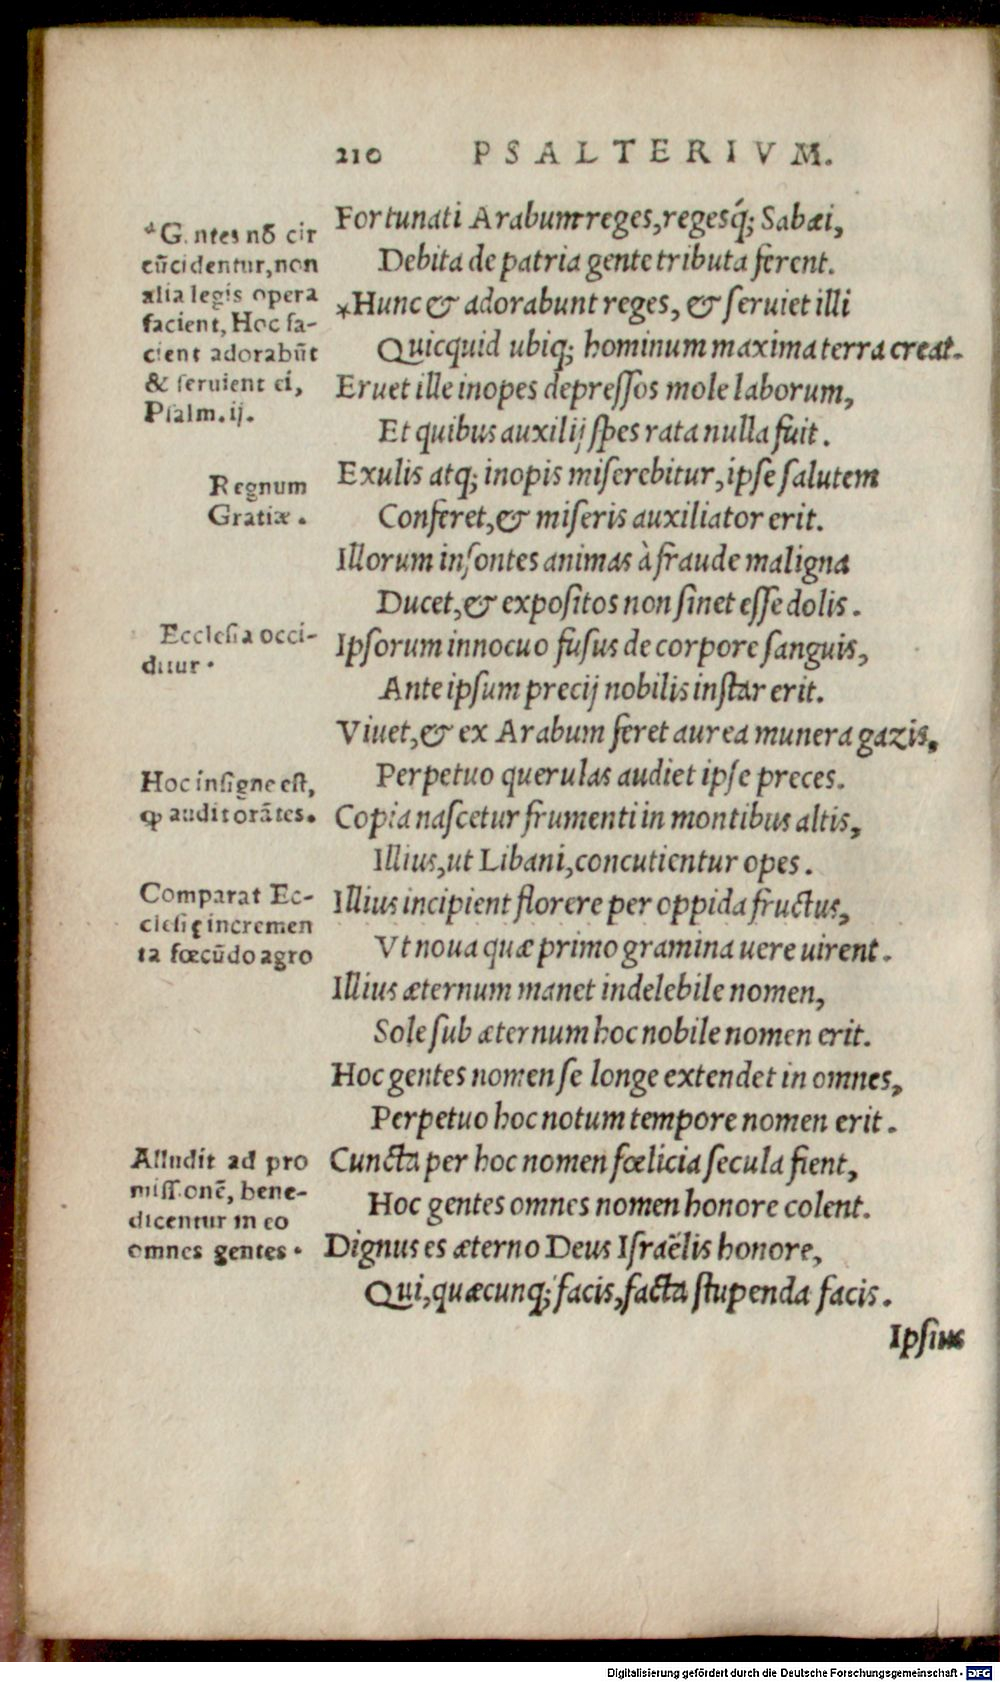 210 PSALTERIVM.
*Gentes nō cir
cūcidentur, non
alia legis opera
facient, Hoc fa-
cient adorabūt
& seruient ei,
Psalm. ij.
Regnum
Gratiæ.
Ecclesia occi-
ditur.
Hoc insigne est,
ꝙ audit orātes.
Comparat Ec-
clesię incremen
ta fœcūdo agro
Alludit ad pro
missionē, bene-
dicentur in eo
omnes gentes.
Fortunati Arabum reges, regesq́; Sabæi,
Debita de patria gente tributa ferent.
*Hunc & adorabunt reges, & seruiet illi
Quicquid ubiq; hominum maxima terra creat.
Eruet ille inopes depressos mole laborum,
Et quibus auxilij spes rata nulla fuit.
Exulis atq; inopis miserebitur, ipse salutem
Conferet, & miseris auxiliator erit.
Illorum insontes animas à fraude maligna
Ducet, & expositos non sinet esse dolis.
Ipsorum innocuo fusus de corpore sanguis,
Ante ipsum precij nobilis instar erit.
Viuet, & ex Arabum feret aurea munera gazis,
Perpetuo querulas audiet ipse preces.
Copia nascetur frumenti in montibus altis,
Illius, ut Libani, concutientur opes.
Illius incipient florere per oppida fructus,
Vt noua quæ primo gramina uere uirent.
Illius æternum manet indelebile nomen,
Sole sub æternum hoc nobile nomen erit.
Hoc gentes nomen se longe extendet in omnes,
Perpetuo hoc notum tempore nomen erit.
Cuncta per hoc nomen fœlicia secula fient,
Hoc gentes omnes nomen honore colent.
Dignus es æterno Deus Israëlis honore,
Qui, quæcunq; facis, facta stupenda facis.
Ipsius
Digitalisierung gefördert durch die Deutsche Forschungsgemeinschaft - DFG